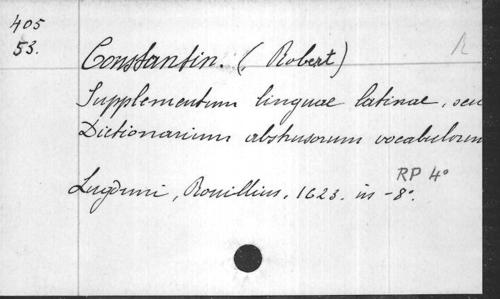 405
53.
Constantin. ( Robert)
Supplementum linguae latinae, seu
Dictionarium abstrusorum vocabulorum
RP 4°
Lugduni, Rouillius, 1623. in -8°.